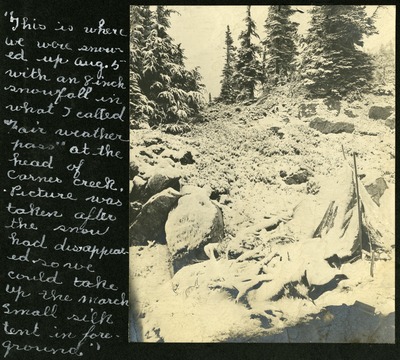 "This is where
we were snow-
ed up Aug. 5
with an 8 inch
snowfall in
what I called
"Fair weather
pass" at the
head of
Carner creek.
Picture was
taken after
the snow
had disappear-
ed so we
could take
up the march
small silk
tent in fore-
ground."